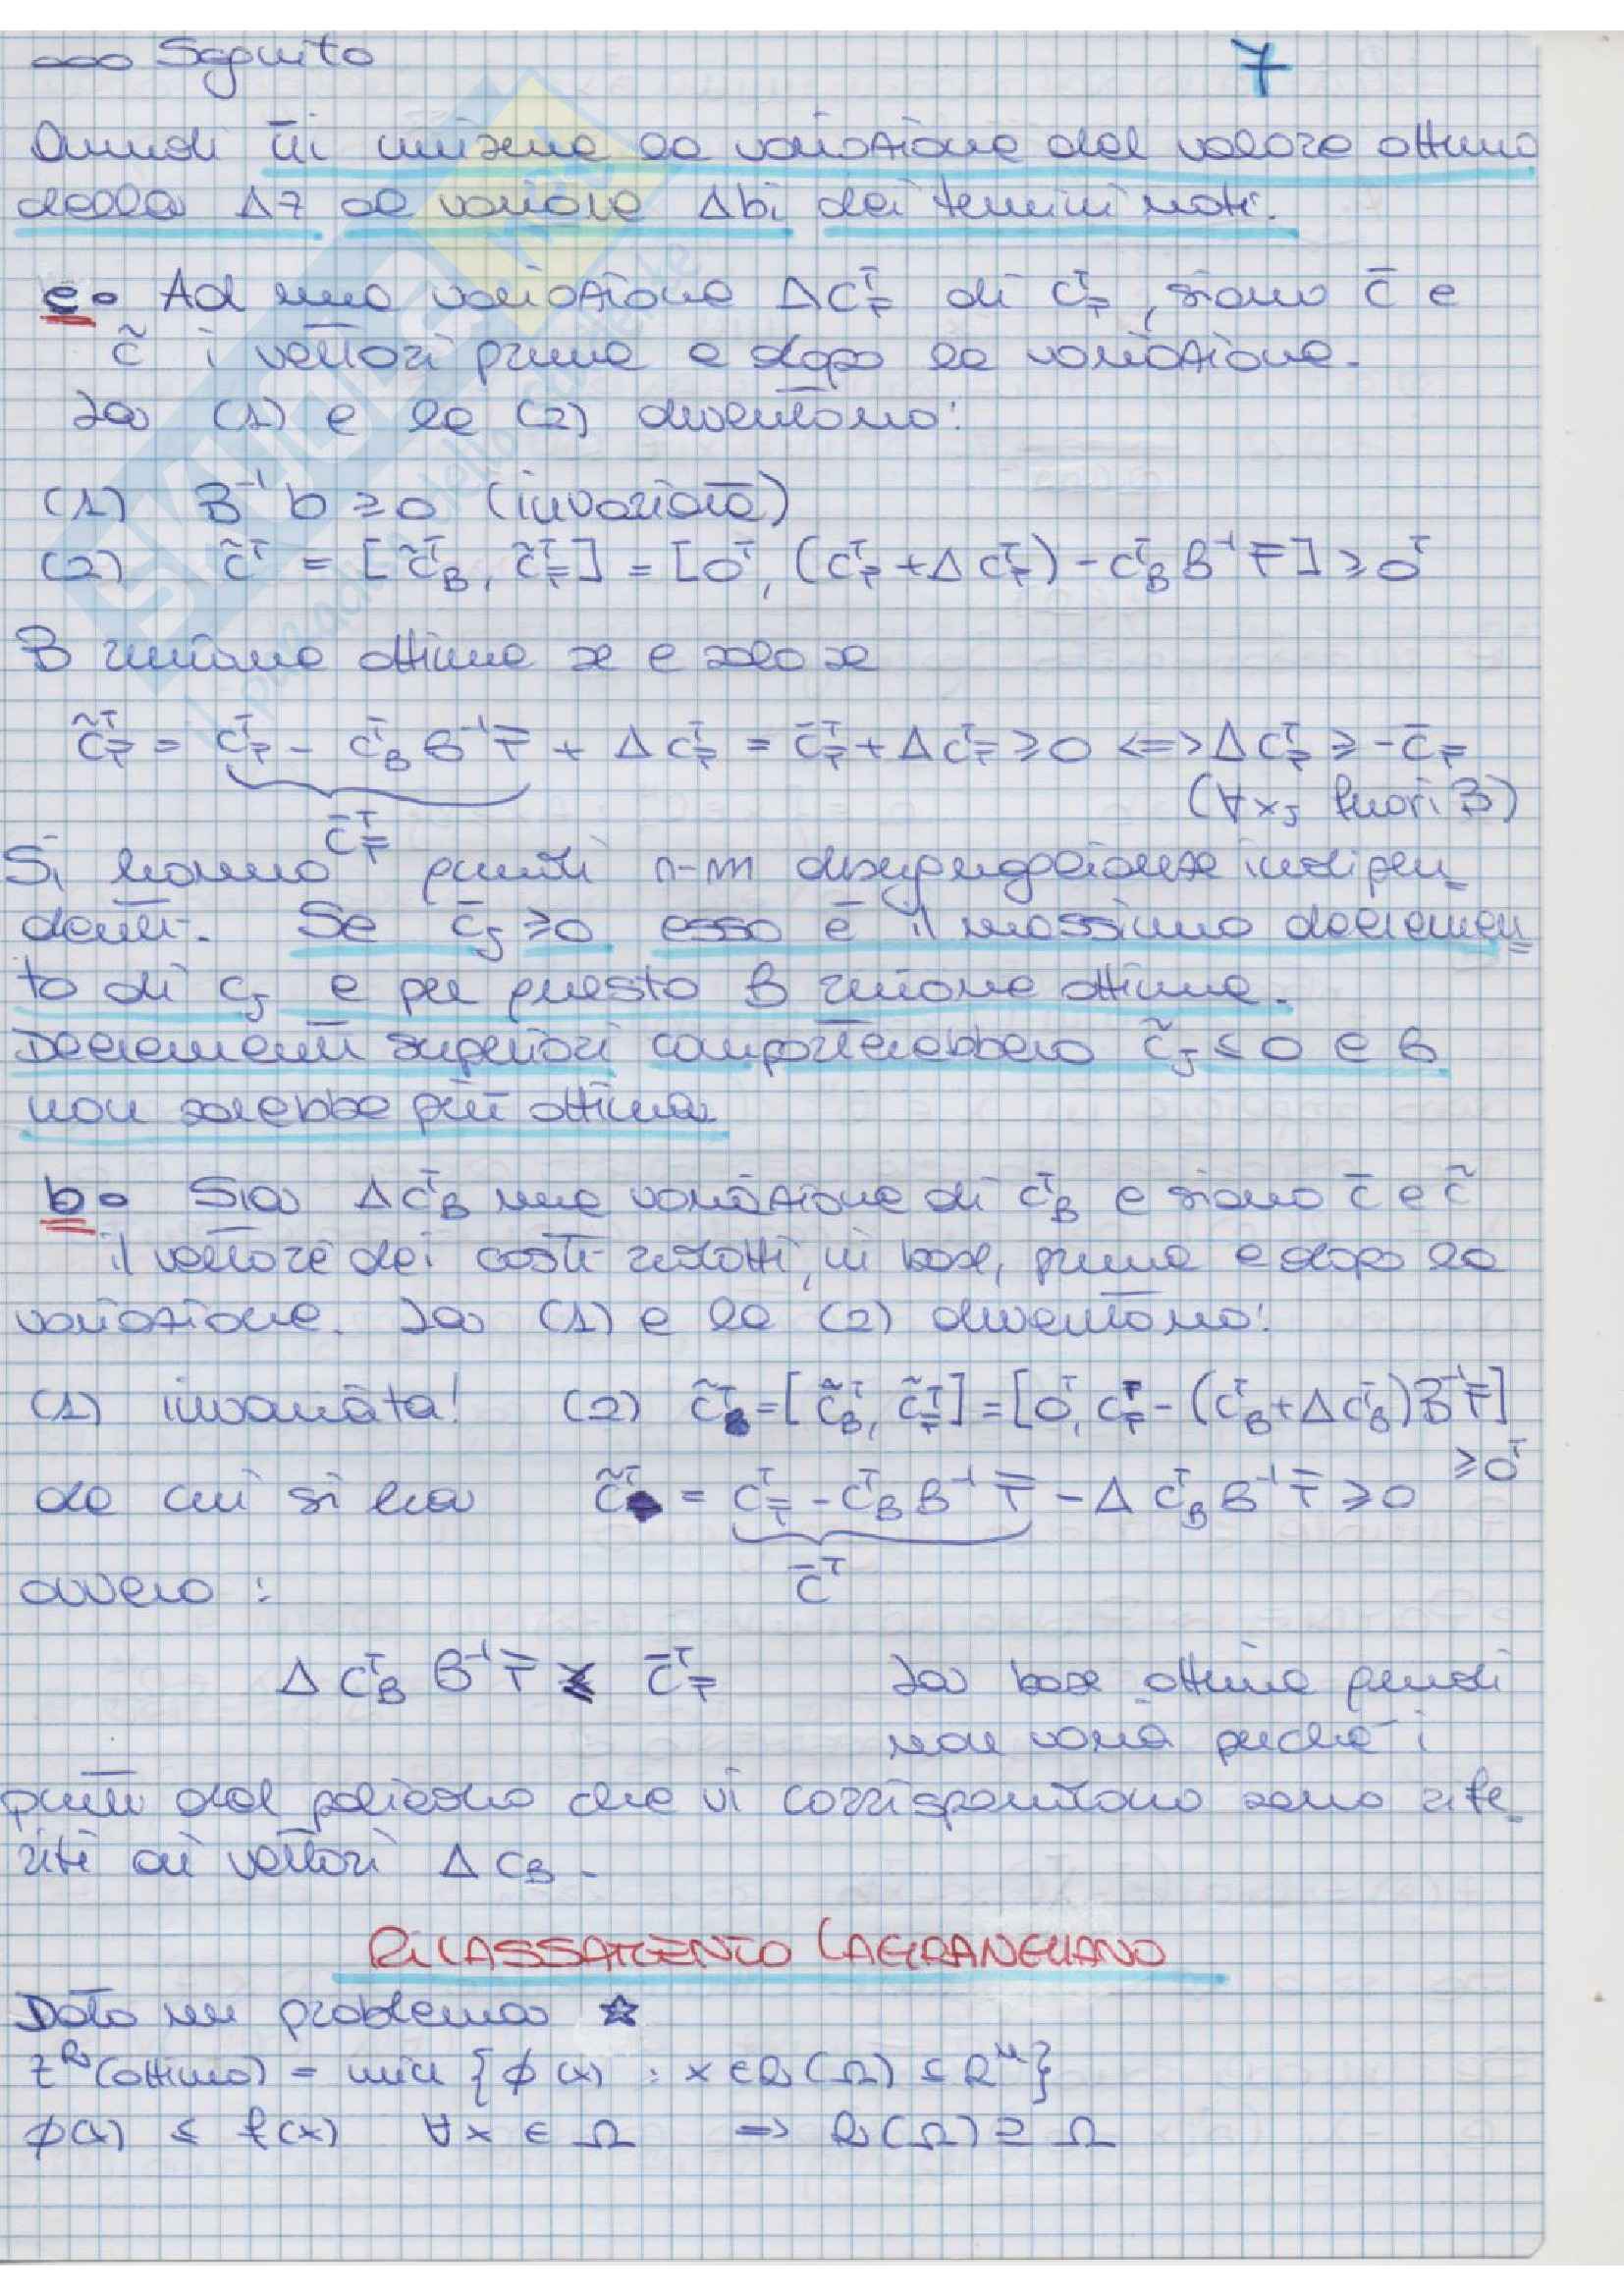 Seguito 7
Quindi ūi misura la variazione del valore ottimo
della Δz al variare Δbi dei termini noti.
c. Ad una variazione ΔC_F^T di C_F^T, siano c̄ e
c̃ i vettori prima e dopo la variazione.
La (1) e la (2) diventano:
(1) B⁻¹b ≥ 0 (invariata)
(2) c̃^T = [c̃_B^T, c̃_F^T] = [0^T, (c_F^T + Δc_F^T) - c_B^T B⁻¹F] ≥ 0^T
B rimane ottima se e solo se
c̃_F^T = c_F^T - c_B^T B⁻¹F + Δc_F^T = c̄_F^T + Δc_F^T ≥ 0 <=> Δc_F^T ≥ -c̄_F
(∀xj fuori B)
c̄_F^T
Si hanno quindi n-m disuguaglianze indipen
denti. Se c̄j ≥ 0 esso è il massimo decremen
to di cj e per questo B rimane ottima.
Decrementi superiori comporterebbero c̃j ≤ 0 e B
non sarebbe più ottima
b. Sia Δc_B^T una variazione di c_B^T e siano c̄ e c̃
il vettore dei costi ridotti, in base, prima e dopo la
variazione. La (1) e la (2) diventano:
(1) invariata! (2) c̃^T = [c̃_B^T, c̃_F^T] = [0^T, c_F^T - (c_B^T + Δc_B^T)B⁻¹F]
≥ 0^T
da cui si ha c̃^T = c_F^T - c_B^T B⁻¹F - Δc_B^T B⁻¹F ≥ 0
c̄^T
ovvero:
Δc_B^T B⁻¹F ≤ c̄_F^T La base ottima quindi
non varia perché i
punti del poliedro che vi corrispondono sono rife
riti ai vettori Δc_B.
RILASSAMENTO LAGRANGIANO
Dato un problema ☆
z^R(ottimo) = min {ϕ(x) : x ∈ R(Ω) ⊆ R^n}
ϕ(x) ≤ f(x) ∀x ∈ Ω => R(Ω) ⊇ Ω